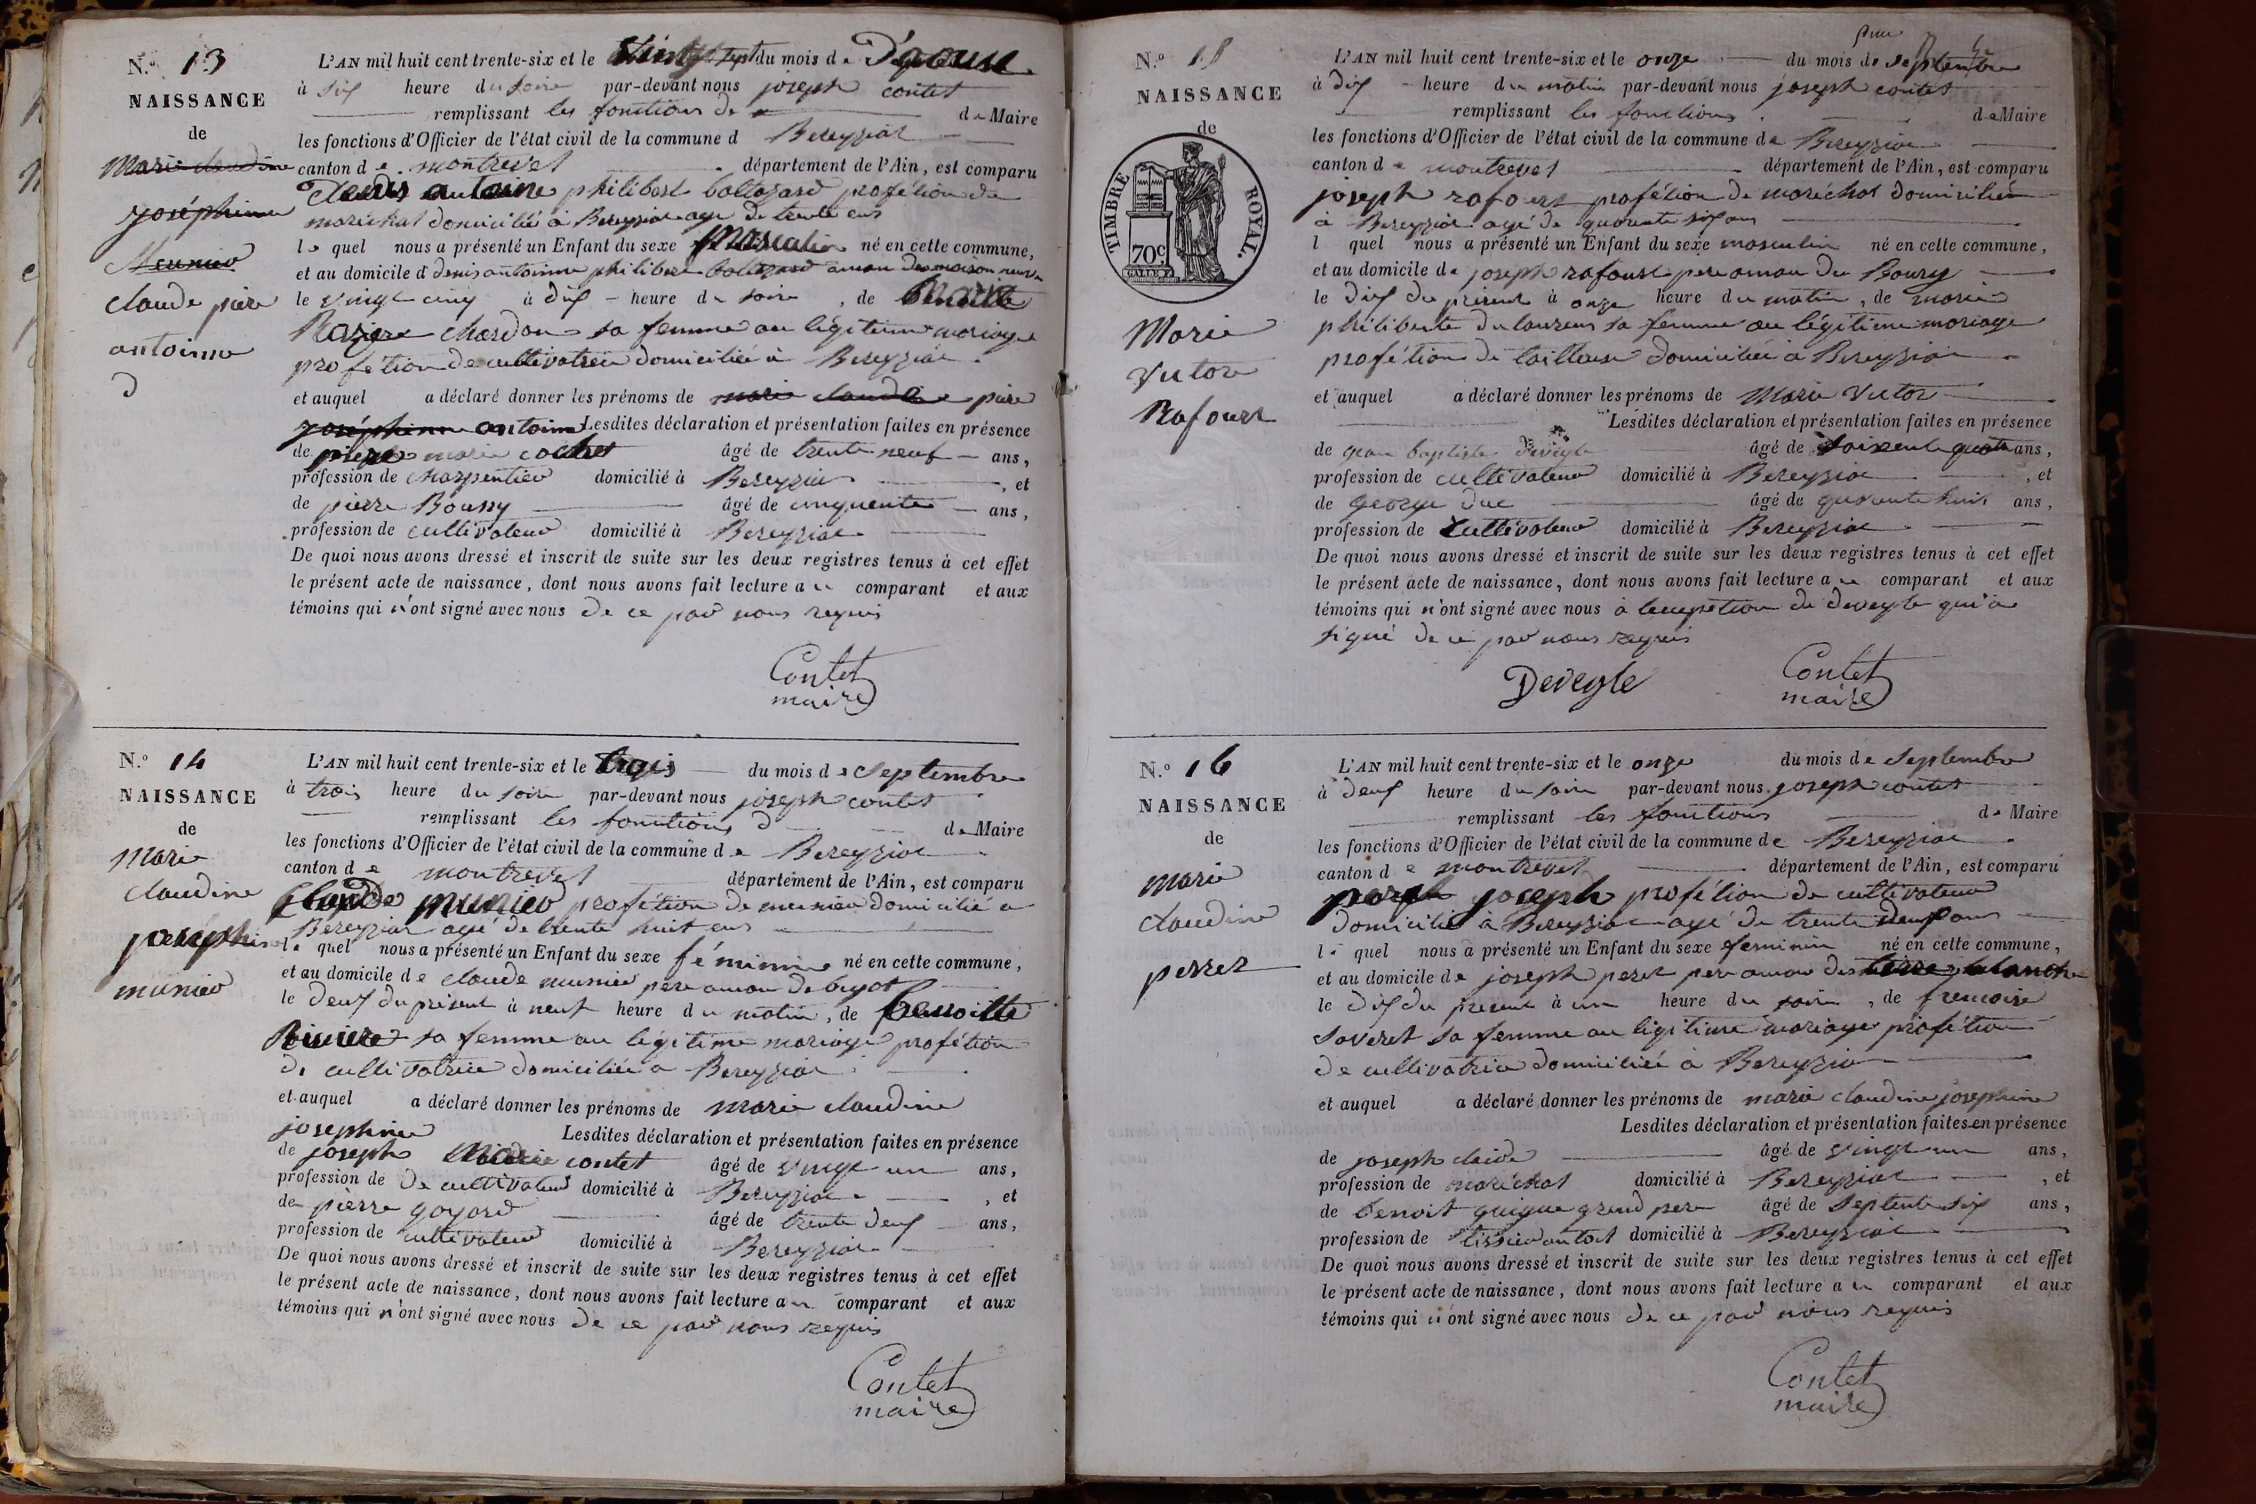 N.º 13
NAISSANCE
de
Marie claudine
joséphinne
Meunier
claude pière
antoinne
L'AN mil huit cent trente-six et le vingt sept du mois de D'aoust
à six heure du soire par-devant nous joseph contet
remplissant les fonctions de de Maire
les fonctions d'Officier de l'état civil de la commune d Bereyziat
canton de montrevel département de l'Ain, est comparu
denis antoinne philibert baltazard profétion de
maréchal domicilié à Bereyziat agé de trente ans
le quel nous a présenté un Enfant du sexe Masculin né en cette commune,
et au domicile d denis antoinne philibert baltazard amau des maison neuve
le vingt cinq à dix heure du soire, de
Rozière chardon sa femme au légitime mariage
profétion de cultivatrice domiciliée à Bereyziat
et auquel a déclaré donner les prénoms de marie claudine pière
joséphinne antoinne Lesdites déclaration et présentation faites en présence
de pierre marie cochet âgé de trente neuf ans,
profession de charpentier domicilié à Bereyziat, et
de pierre Boussy âgé de cinquente ans,
profession de cultivateur domicilié à Bereyziat
De quoi nous avons dressé et inscrit de suite sur les deux registres tenus à cet effet
le présent acte de naissance, dont nous avons fait lecture au comparant et aux
témoins qui n'ont signé avec nous de ce par nous requis
Contet
maire
N.º 14
NAISSANCE
de
marie
claudine
joséphine
munier
L'AN mil huit cent trente-six et le trois du mois de Septembre
à trois heure du soire par-devant nous joseph contet
remplissant les fonctions d de Maire
les fonctions d'Officier de l'état civil de la commune de Bereyziat
canton de montrevel département de l'Ain, est comparu
claude munier profétion de meunier domicilié a
Bereyziat agé de trente huit ans
le quel nous a présenté un Enfant du sexe féminine né en cette commune,
et au domicile de claude munier père amau de bugot
le deux du présent à neuf heure du matin, de benoitte
Rivière sa femme au légitime mariage profétion
de cultivatrice domiciliée a Bereyziat
et auquel a déclaré donner les prénoms de marie claudine
josephine Lesdites déclaration et présentation faites en présence
de joseph marie contet âgé de vingt un ans,
profession de de cultivateur domicilié à Bereyziat, et
de pierre goyard âgé de trente deux ans,
profession de cultivateur domicilié à Bereyziat
De quoi nous avons dressé et inscrit de suite sur les deux registres tenus à cet effet
le présent acte de naissance, dont nous avons fait lecture au comparant et aux
témoins qui n'ont signé avec nous de ce par nous requis
Contet
maire
N.º 15
NAISSANCE
de
TIMBRE ROYAL.
70c
Marie
Victor
Rafourt
L'AN mil huit cent trente-six et le onze du mois de septembre
à dix heure du matin par-devant nous joseph contet
remplissant les fonctions de Maire
les fonctions d'Officier de l'état civil de la commune de Bereyziat
canton de montrevel département de l'Ain, est comparu
joseph rafourt profétion de maréchal domicilié
à Bereyziat agé de quarante six ans
l quel nous a présenté un Enfant du sexe masculin né en cette commune,
et au domicile de joseph rafourt père amau du Bourg
le dix du présent à onze heure du matin, de marie
philiberte dulaurens sa femme au légitime mariage
profétion de tailleuse domiciliée à Bereyziat
et auquel a déclaré donner les prénoms de Marie Victor
Lesdites déclaration et présentation faites en présence
de jean baptiste deveyle âgé de soixente quatre ans,
profession de cultivateur domicilié à Bereyziat, et
de george duc âgé de quarante huit ans,
profession de cultivateur domicilié à Bereyziat
De quoi nous avons dressé et inscrit de suite sur les deux registres tenus à cet effet
le présent acte de naissance, dont nous avons fait lecture au comparant et aux
témoins qui n'ont signé avec nous à lexeption de deveyle qui a
signé de ce par nous requis
Deveyle
Contet
maire
N.º 16
NAISSANCE
de
marie
claudine
perret
L'AN mil huit cent trente-six et le onze du mois de Septembre
à deux heure du soire par-devant nous joseph contet
remplissant les fonctions de Maire
les fonctions d'Officier de l'état civil de la commune de Bereyziat
canton de montrevel département de l'Ain, est comparu
joseph profétion de cultivateur
domicilié à Bereyziat agé de trente deux ans
le quel nous a présenté un Enfant du sexe feminin né en cette commune,
et au domicile de joseph peret père amau des
le dix du présent à un heure du soire, de
Saveret sa femme au légitime mariage profétion
de cultivatrice domiciliée à Bereyziat
et auquel a déclaré donner les prénoms de marie claudine josephine
Lesdites déclaration et présentation faites en présence
de joseph âgé de vingt un ans,
profession de maréchal domicilié à Bereyziat, et
de benoit guigue grand père âgé de septente six ans,
profession de domicilié à Bereyziat
De quoi nous avons dressé et inscrit de suite sur les deux registres tenus à cet effet
le présent acte de naissance, dont nous avons fait lecture au comparant et aux
témoins qui n'ont signé avec nous de ce par nous requis
Contet
maire